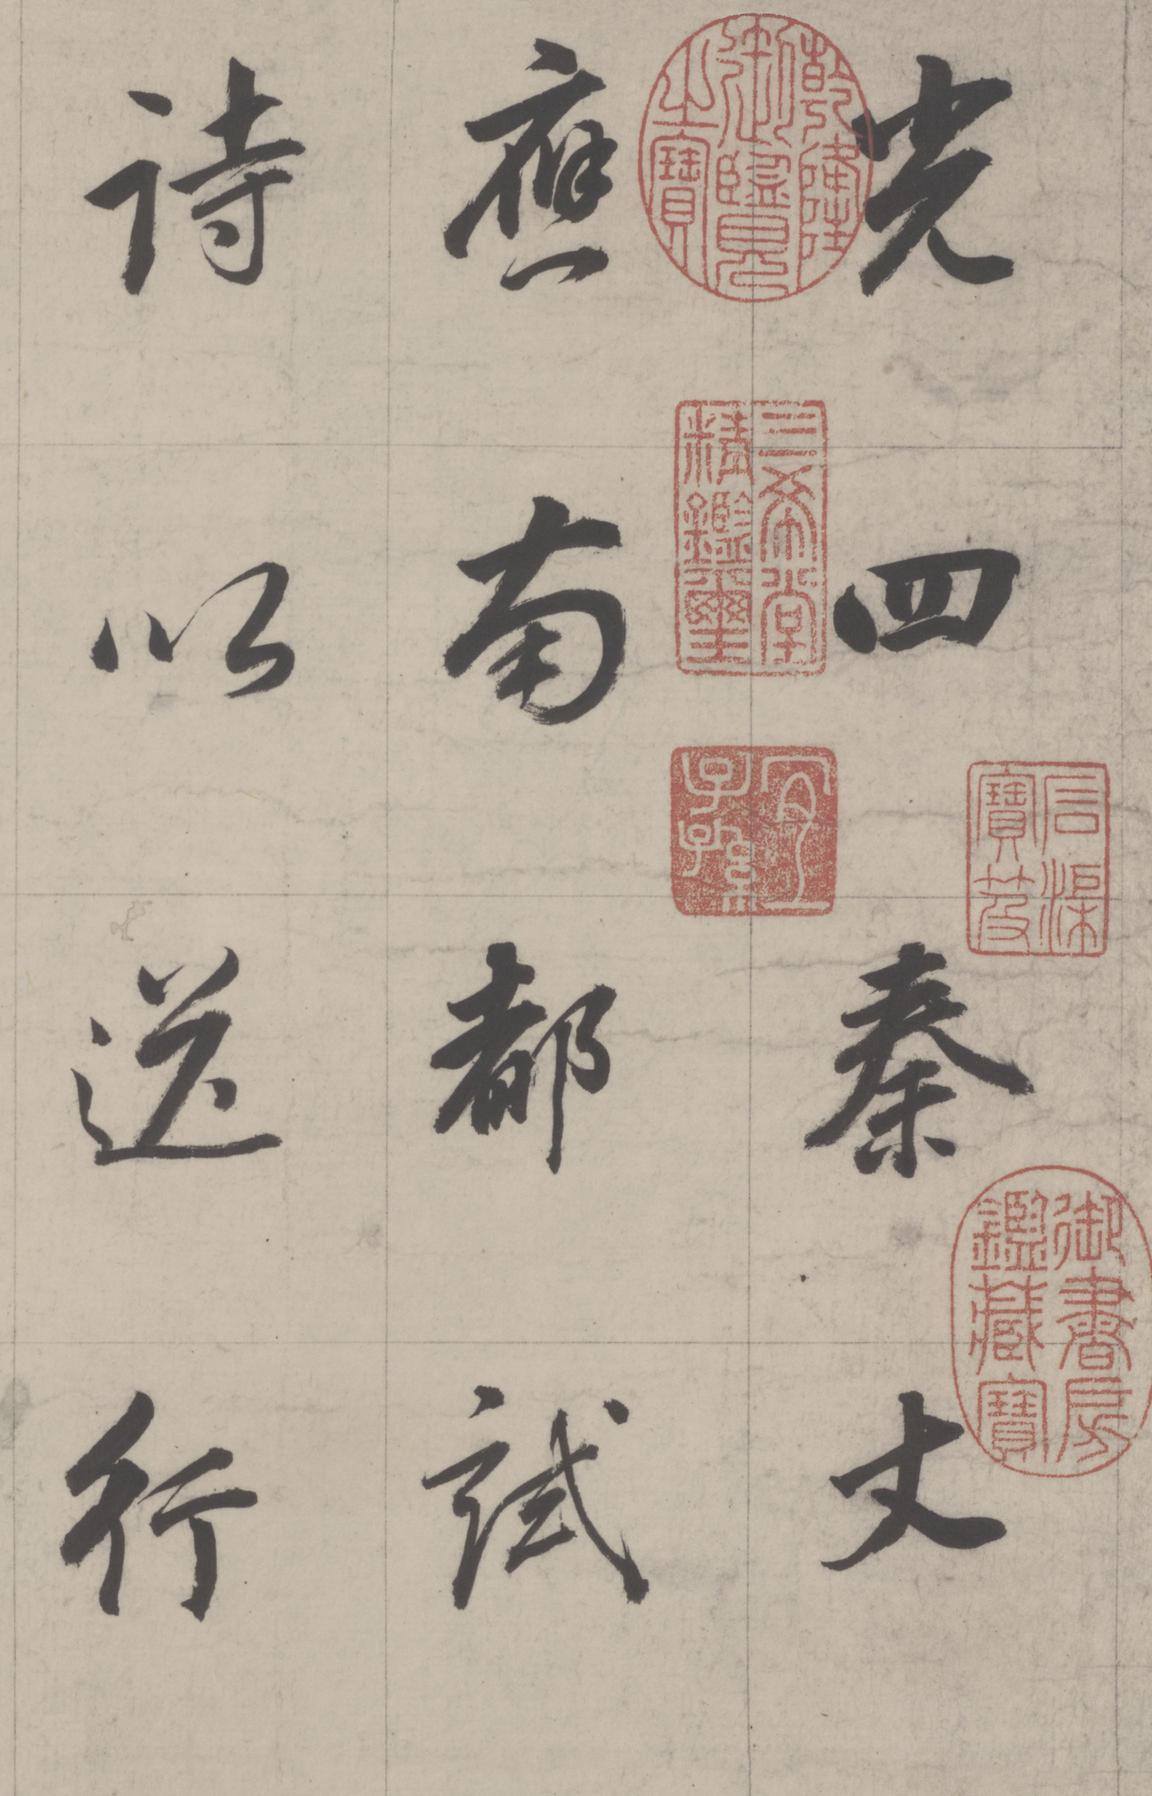 光四秦丈
應南都試
詩以送行
乾隆
御覽
之寶
三希堂
精鑑璽
宜
子孫
石渠
寶笈
御書房
鑑藏寶